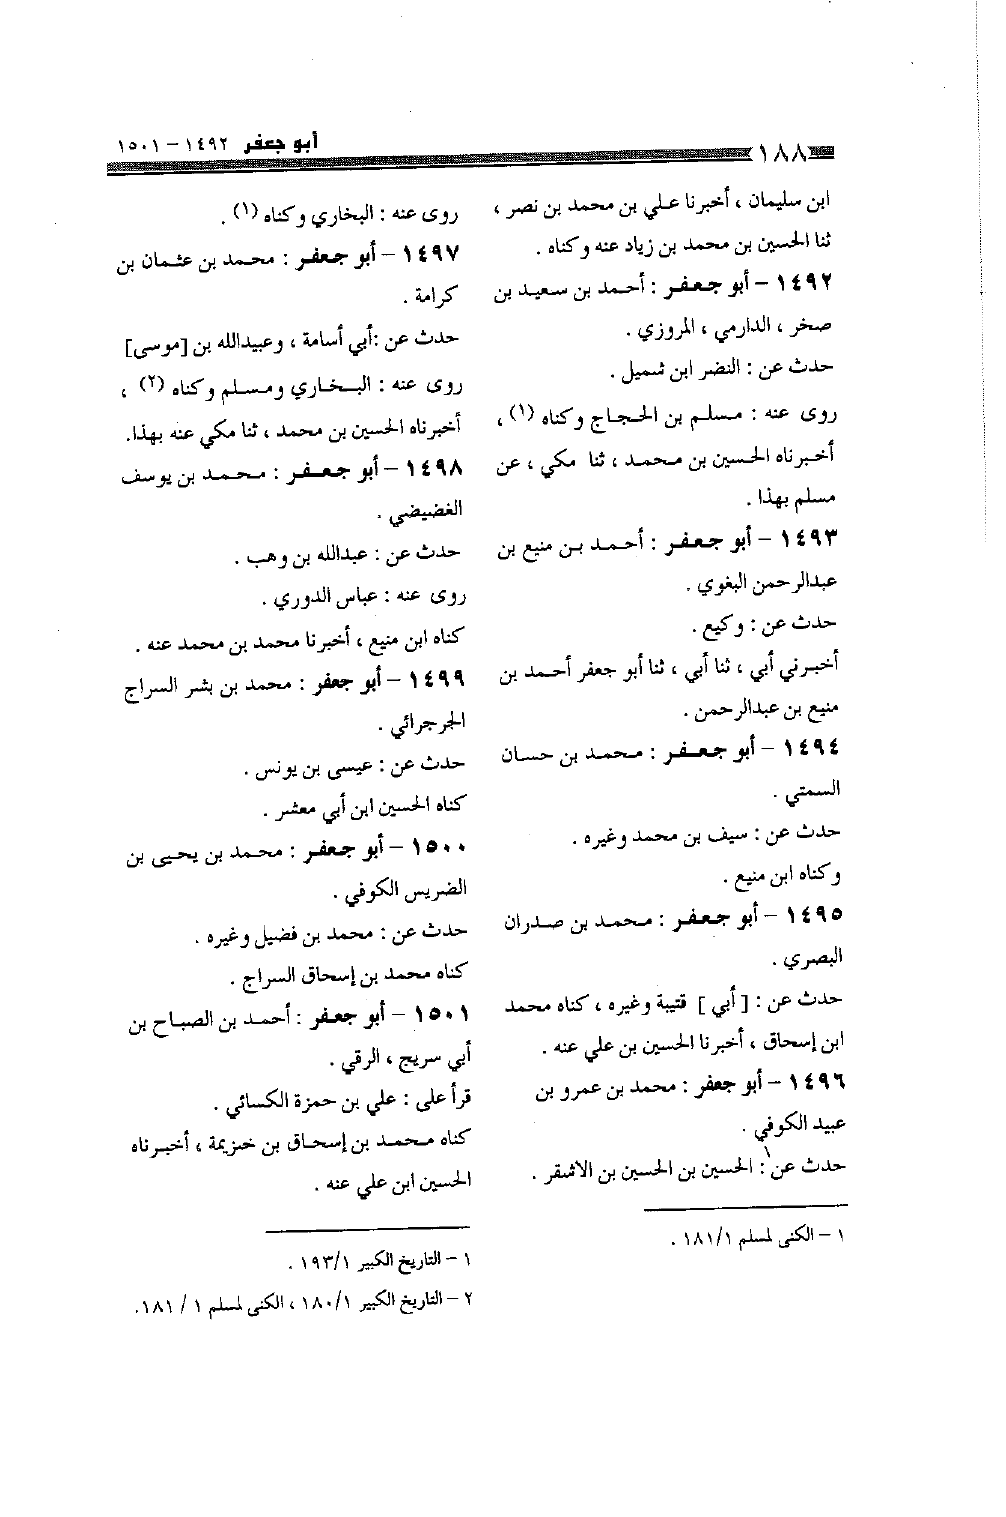 ١٨٨
أبو جعفر ١٤٩٢ – ١٥٠١
ابن سليمان ، أخبرنا علي بن محمد بن نصر ،
ثنا الحسين بن محمد بن زياد عنه وكناه .
١٤٩٢ – أبو جعفر : أحمد بن سعيد بن
صخر ، الدارمي ، المروزي .
حدث عن : النضر ابن شميل .
روى عنه : مسلم بن الحجاج وكناه (١) ،
أخبرناه الحسين بن محمد ، ثنا مكي ، عن
مسلم بهذا .
١٤٩٣ – أبو جعفر : أحمد بن منيع بن
عبدالرحمن البغوي .
حدث عن : وكيع .
أخبرني أبي ، ثنا أبي ، ثنا أبو جعفر أحمد بن
منيع بن عبدالرحمن .
١٤٩٤ – أبو جعفر : محمد بن حسان
السمتي .
حدث عن : سيف بن محمد وغيره .
وكناه ابن منيع .
١٤٩٥ – أبو جعفر : محمد بن صدران
البصري .
حدث عن : [ أبي ] قتيبة وغيره ، كناه محمد
ابن إسحاق ، أخبرنا الحسين بن علي عنه .
١٤٩٦ – أبو جعفر : محمد بن عمرو بن
عبيد الكوفي .
حدث عن : الحسين بن الحسين بن الاشقر .
١ – الكنى لمسلم ١٨١/١ .
روى عنه : البخاري وكناه (١) .
١٤٩٧ – أبو جعفر : محمد بن عثمان بن
كرامة .
حدث عن :أبي أسامة ، وعبيدالله بن [موسى]
روى عنه : البخاري ومسلم وكناه (٢) ،
أخبرناه الحسين بن محمد ، ثنا مكي عنه بهذا.
١٤٩٨ – أبو جعفر : محمد بن يوسف
الغضيضي .
حدث عن : عبدالله بن وهب .
روى عنه : عباس الدوري .
كناه ابن منيع ، أخبرنا محمد بن محمد عنه .
١٤٩٩ – أبو جعفر : محمد بن بشر السراج
الجرجرائي .
حدث عن : عيسى بن يونس .
كناه الحسين ابن أبي معشر .
١٥٠٠ – أبو جعفر : محمد بن يحيى بن
الضريس الكوفي .
حدث عن : محمد بن فضيل وغيره .
كناه محمد بن إسحاق السراج .
١٥٠١ – أبو جعفر : أحمد بن الصباح بن
أبي سريج ، الرقي .
قرأ على : علي بن حمزة الكسائي .
كناه محمد بن إسحاق بن خزيمة ، أخبرناه
الحسين ابن علي عنه .
١ – التاريخ الكبير ١٩٣/١ .
٢ – التاريخ الكبير ١٨٠/١ ، الكنى لمسلم ١ / ١٨١.